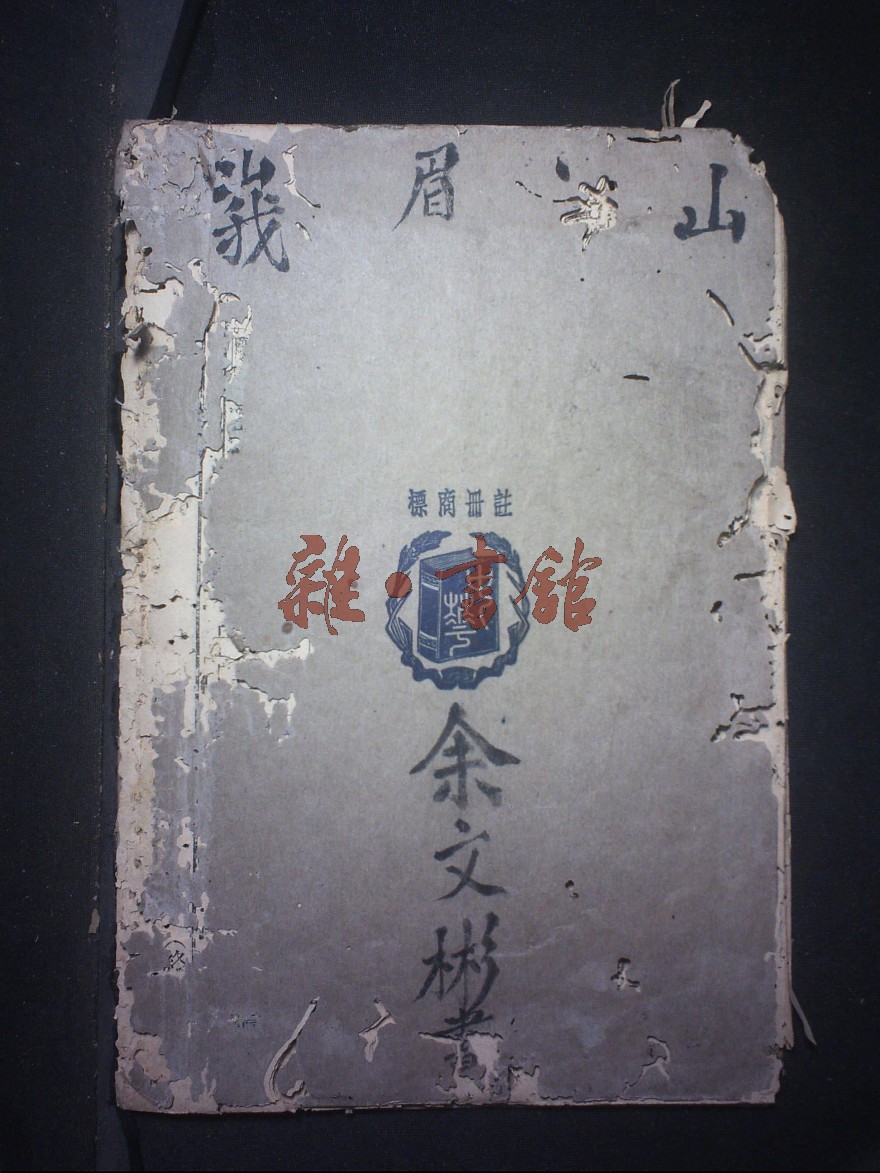 峩眉山
註冊商標
雜·書館
余文彬書
(終